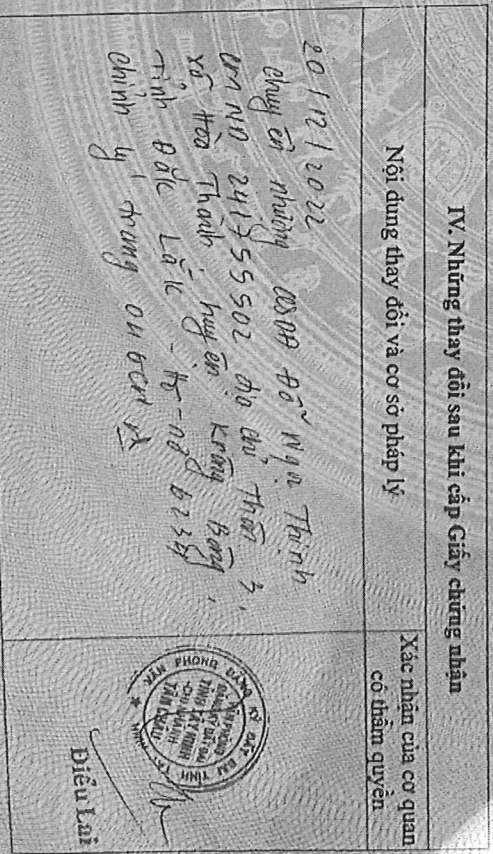 IV. Những thay đổi sau khi cấp Giấy chứng nhận
Nội dung thay đổi và cơ sở pháp lý
Xác nhận của cơ quan
có thẩm quyền
20/12/2022
chuyển nhượng QSDĐ Đỗ Ngọc Thịnh
CMND 241755502 địa chỉ Thôn 3,
xã Hòa Thành, huyện Krông Bông,
tỉnh Đắk Lắk - HS-
chỉnh lý trang
VĂN PHÒNG ĐĂNG KÝ ĐẤT ĐAI TỈNH
VĂN PHÒNG
ĐĂNG KÝ ĐẤT ĐAI
TỈNH TÂY NINH
CHI NHÁNH
TÂN CHÂU
Điểu Lai